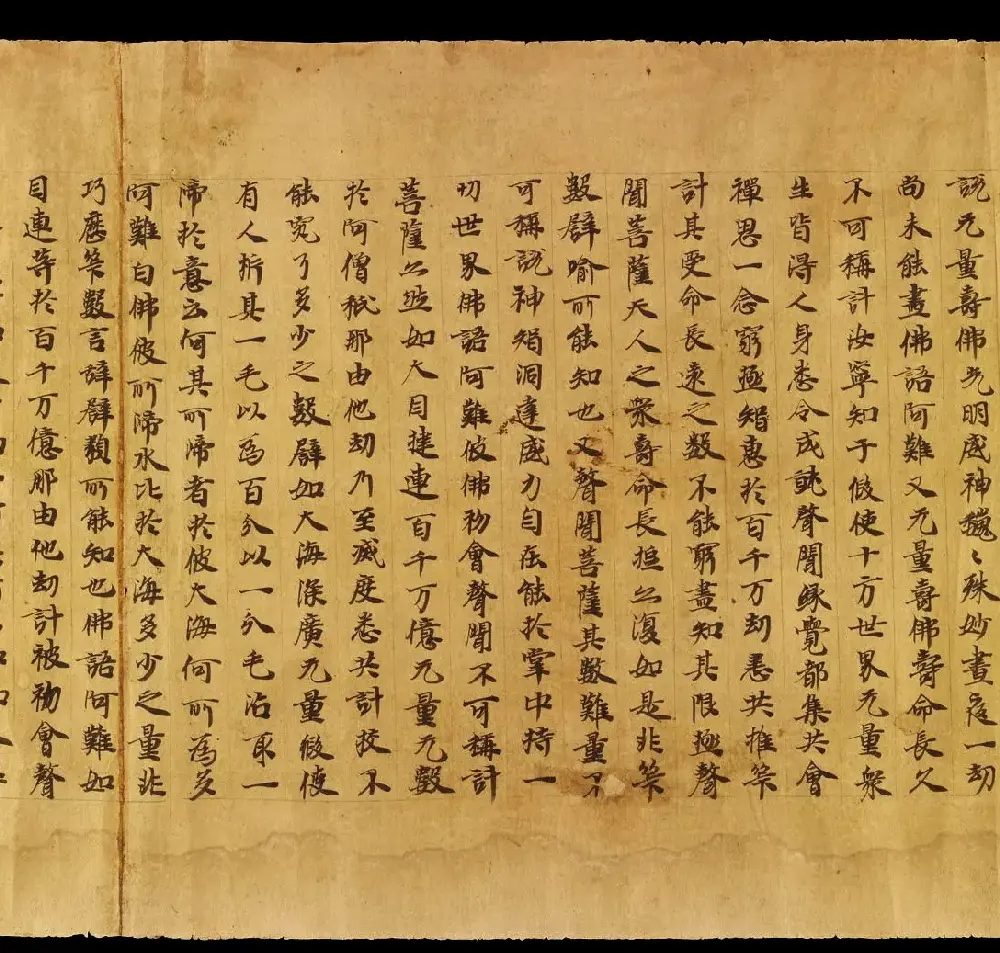 説无量壽佛光明威神巍〻殊妙晝夜一劫
尚未能盡佛語阿難又无量壽佛壽命長久
不可稱計汝寧知乎假使十方世界无量衆
生皆得人身悉令成就聲聞緣覺都集共會
禪思一念窮極智惠於百千万劫悉共推筭
計其受命長遠之數不能窮盡知其限極聲
聞菩薩天人之衆壽命長短亦復如是非筭
數辟喻所能知也又聲聞菩薩其數難量不
可稱説神智洞達威力自在能於掌中持一
切世界佛語阿難彼佛初會聲聞不可稱計
菩薩亦然如大目揵連百千万億无量无數
於阿僧祇那由他劫乃至滅度悉共計挍不
能究了多少之數辟如大海深廣无量假使
有人析其一毛以爲百分以一分毛沾取一
渧於意云何其所渧者於彼大海何所爲多
阿難白佛彼所渧水比於大海多少之量非
巧歷筭數言辭辟類所能知也佛語阿難如
目連等於百千万億那由他劫計彼初會聲